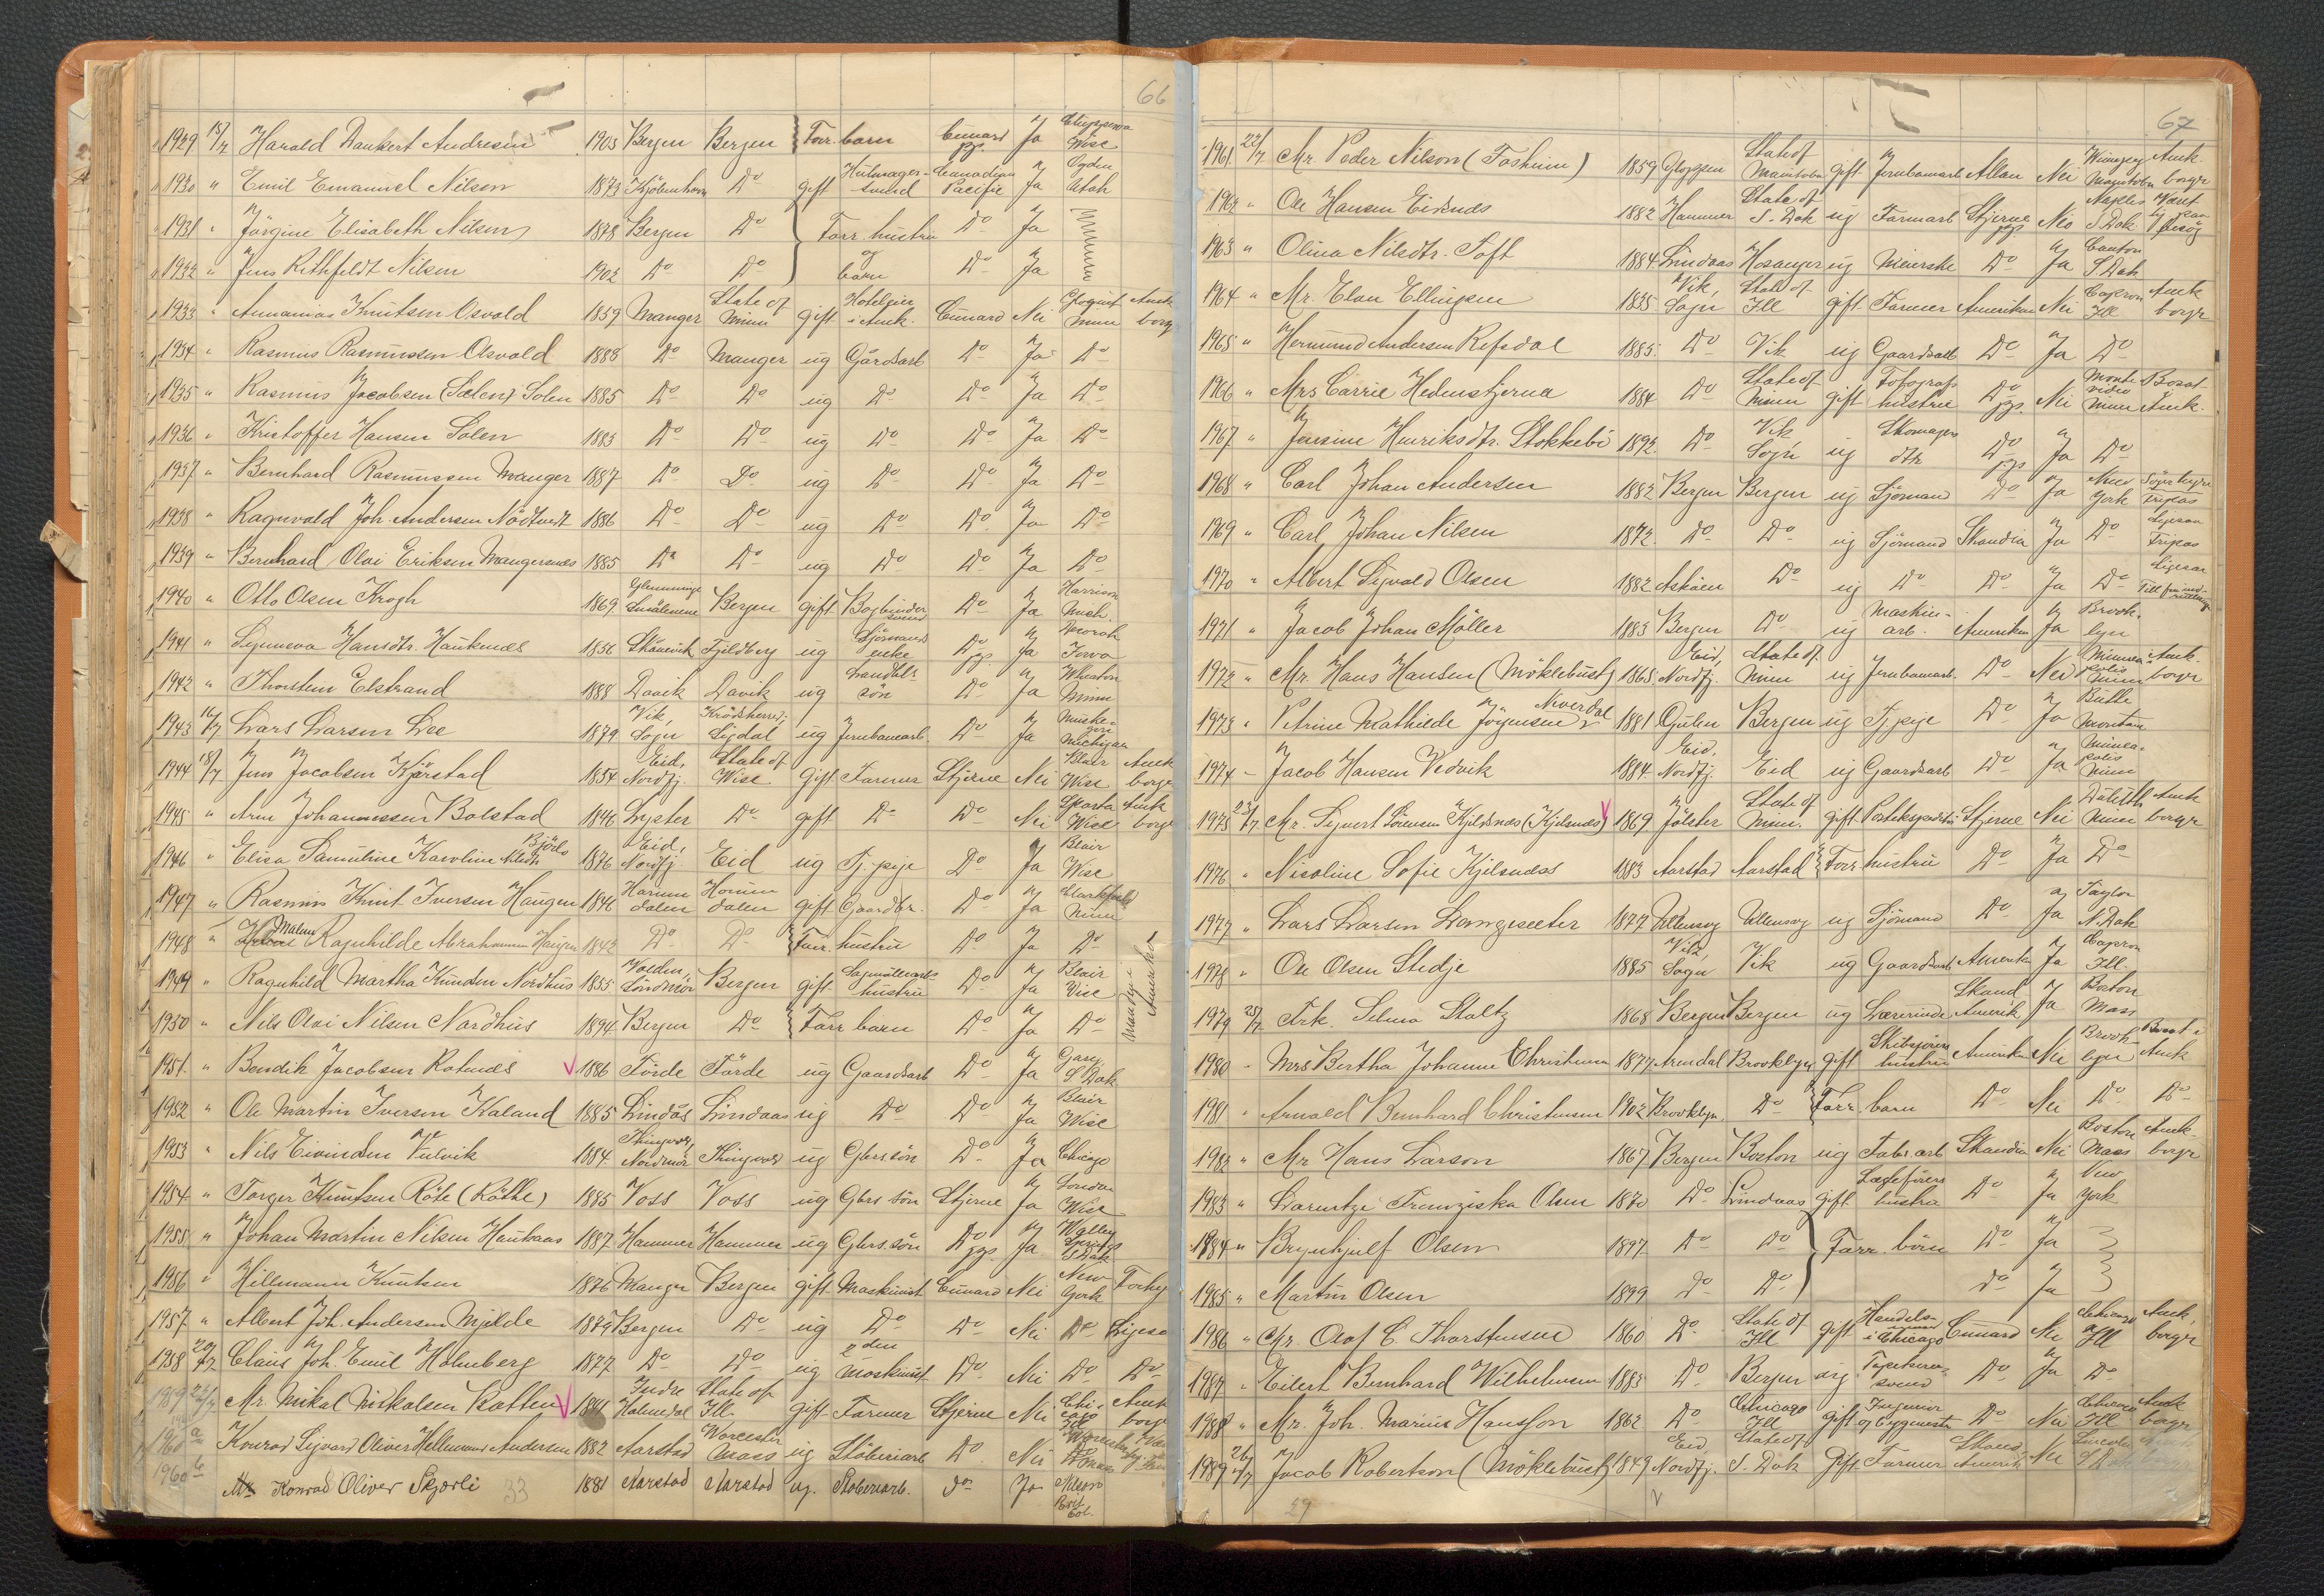 66
1929 15/7 Harald Dankert Andresen 1903 Bergen Bergen Forr. barn Cunard pp. Ja Chippewa Wisc
1930 " Emil Emanuel Nilsen 1873 Kjöbenhavn Do gift svend Canadian Pacific Ja Ogden Utah
1931 " Jörgine Elisabeth Nilsen 1878 Bergen Do Forr. hustru Do Ja
1932 " Jens Rithfeldt Nilsen 1902 Do Do og barn Do Ja
1933 " Annanias Knutsen Osvald 1859 Manger State of Minn gift Hoteleier i Amk. Cunard Nei Minn Amk borgr
1934 " Rasmus Rasmussen Osvald 1888 Do Manger ug Gårdsarb Do Ja Do
1935 " Rasmus Jacobsen (Sælen) Solen 1885 Do Do ug Do Do Ja Do
1936 " Kristoffer Hansen Solen 1883 Do Do ug Do Do Ja Do
1937 " Bernhard Rasmussen Manger 1887 Do Do ug Do Do Ja Do
1938 " Ragnvald Joh. Andersen Nödtvedt 1886 Do Do ug Do Do Ja Do
1939 " Bernhard Olai Eriksen Mangersnes 1885 Do Do ug Do Do Ja Do
1940 " Otto Olsen Krogh 1869 Glemminge Smålenene Bergen gift Bogbinder svend Do Ja Harrison Mich.
1941 " Synneva Hansdtr. Haukenes 1856 Skånevik Fjeldberg ug Sjömands enke Do pp. Ja Morah Iowa
1942 " Thorstein Elstrand 1888 Davik Davik ug Landhls- sön Do Ja Wheaton Minn
1943 16/7 Lars Larsen Lee 1879 Vik, Sogn Krödsherred, Sigdal ug Jernbanearb. Do Ja Muskegon Michigan
1944 18/7 Jens Jacobsen Kjörstad 1854 Eid, Nordfj. State of Wisc. gift Farmer Stjerne Nei Blair Wisc Amk borgr
1945 " Arne Johannessen Bolstad 1846 Lyster Do gift Do Do Nei Sparta Wisc Amk borgr
1946 " Elisa Samuline Karoline Bjørlo 1876 Eid, Nordfj. Eid ug Tj. pige Do Ja Blair Wisc
1947 " Rasmus Knut Iversen Haugen 1846 Hornindalen Hornindalen gift Gaardbr. Do Ja Clarkfield Minn
1948 " Malene Ragnhilde Abrahamsen Haugen 1842 Do Do Forr. hustru Do Ja Do
1949 " Ragnhild Martha Knudsen Nordhus 1855 Volden, Söndmör Bergen gift Sagmöllearb. hustru Do Ja Blair Wisc
1950 " Nils Olai Nilsen Nordhus 1894 Bergen Do Forr barn Do Ja Do
Mand i Amerika
1951 " Bendik Jacobsen Rotnes 1886 Förde Förde ug Gaardsarb Do Ja Gary S Dak
1952 " Ole Martin Iversen Kaland 1885 Lindås Lindaas ug Do Do Ja Blair Wisc
1953 " Nils Eivindsen Vulvik 1884 Thingvold, Nordmör Thingvold ug Gbrs sön Do Ja Chicago
1954 " Torger Knutsen Röte (Röthe) 1885 Voss Voss ug Gbrs sön Stjerne Ja London Wisc
1955 " Johan Martin Nilsen Haukaas 1887 Hammer Hammer ug Gbrs. sön Do pp. Ja Walley Springs S Dak
1956 " Hillmann Knutsen 1876 Manger Bergen gift Maskinist Cunard Nei New York
1957 " Albert Joh. Andersen Mjelde 1879 Bergen Do ug Do Do Nei Do Ligesaa
1958 20/7 Claus Joh. Emil Holmberg 1877 Do Do ug 2den Maskinist Do Nei Do Do
1959 22/7 Mr. Mikal Mikalsen Botten 1841 Indre Holmedal State of Ill gift Farmer Stjerne Nei Chicago Amk borgr
1960 a Konrad Sigvard Oliver Hellemund Andersen 1882 Aarstad Worcester Mass ug Stöberiarb Do Nei
1960 b Konrad Oliver Skjærli 33 1881 Aarstad Aarstad ug. Stoberiarb. do Ja Nelson Brit Col.
67
1961 22/7 Mr. Peder Nilson (Fosheim) 1859 Gloppen State of Manitoba gift Jernbanearb Allan Nei Winnipeg Manitoba Amk borgr
1962 " Ole Hansen Eidsnes 1882 Hammer State of S. Dak ug Farmarb Stjerne pp. Nei Naples S Dak
1963 " Olina Nilsdtr. Toft 1884 Lindaas Hosanger ug Meierske Do Ja Canton S Dak
1964 " Mr. Elan Ellingsen 1835 Vik, Sogn State of Ill gift Farmer Amerikan Nei Capron Ill Amk borgr
1965 " Hermund Andersen Refsdal 1885 Do Vik ug Gaardsarb Do Ja Do
1966 " Mrs Carrie Hedenstjerna 1884 Do State of Minn gift Fotografs hustru Do pp. Nei Montevideo Minn Bosat Amk.
1967 " Jensine Henriksdtr. Stokkebö 1892 Do Vik Sogn ug Skomagers dtr Do pp Ja Do
1968 " Carl Johan Andersen 1882 Bergen Bergen ug Sjömand Do Ja New York
1969 " Carl Johan Nilsen 1872 do Do ug Sjömand Skandia Ja Do Ligesaa
1970 " Albert Sigvald Olsen 1882 Askøen Do ug Do Do Ja Do Ligesaa
1971 " Jacob Johan Möller 1883 Bergen Do ug Maskinarb. Amerikan Ja Brooklyn
1972 " Mr. Hans Hansen (Möklebust) 1865 Eid, Nordfj. State of Minn ug Jernbanearb. Do Nei Minneapolis Minn Amk. borgr
1973 " Petrine Mathilde Jörgensen Nverdal 1881 Gulen Bergen ug Tj. pige Do Ja Butte Montana
1974 - Jacob Hansen Vedvik 1884 Eid, Nordfj. Eid ug Gaardsarb Do Ja Mineapolis Minn
1975 23/7 Mr. Sigvert Sörensen Kjeldsnæs (Kjelsnæs) 1869 Jölster State of Minn. gift Postekspeditör Stjerne Nei Duluth Minn Amk borgr
1976 " Nicoline Sofie Kjelsndas 1883 Aarstad Aarstad Forr hustru Do Ja Do
1977 " Lars Larsen Langesæter 1877 Ullensvg Ullensvg ug Sjömand Do Ja Taylor N. Dak
1978 " Ole Olsen Stedje 1885 Vik, Sogn Vik ug Gaardsarb Amerik Ja Capron Ill.
1979 25/7 Frk. Selma Stoltz 1868 Bergen Bergen ug Lærerinde Skand Amerik Ja Boston Mass
1980 - Mrs Bertha Johanne Christensen 1877 Arendal Brooklyn gift hustru Amerikan Nei Brooklyn Bosat i Amk
1981 " Arnold Bernhard Christensen 1902 Brooklyn Do Forr. barn Do Nei Do Do
1982 " Mr Hans Larson 1867 Bergen Boston ug Fabr. arb Skandia Nei Boston Mass Amk borgr
1983 " Larentze Franziska Olsen 1870 Do Lindaas gift hustru Do Ja New York
1984 " Brynhjulf Olsen 1897 Do Do Forr. börn Do Ja
1985 " Martin Olsen 1899 Do Do do Ja
1986 " Mr Olaf C. Thorstensen 1860 Do State of Ill gift Handelsmand i Chicago Cunard Nei Chicago Ill Amk. borgr
1987 " Eilert Bernhard Wilhelmsen 1883 Do Bergen ug Tapetserer svend Do Ja Do
1988 " Mr. Joh. Marius Hansson 1862 Do Chicago Ill gift Ingeniör og bygmester Do Nei Chicago Ill Amk borgr
1989 26/7 Jacob Robertson (Möklebust) 1849 Eid, Nordfj. State of S. Dak gift Farmer Skand. Amerik Nei Lincoln S Dak
29